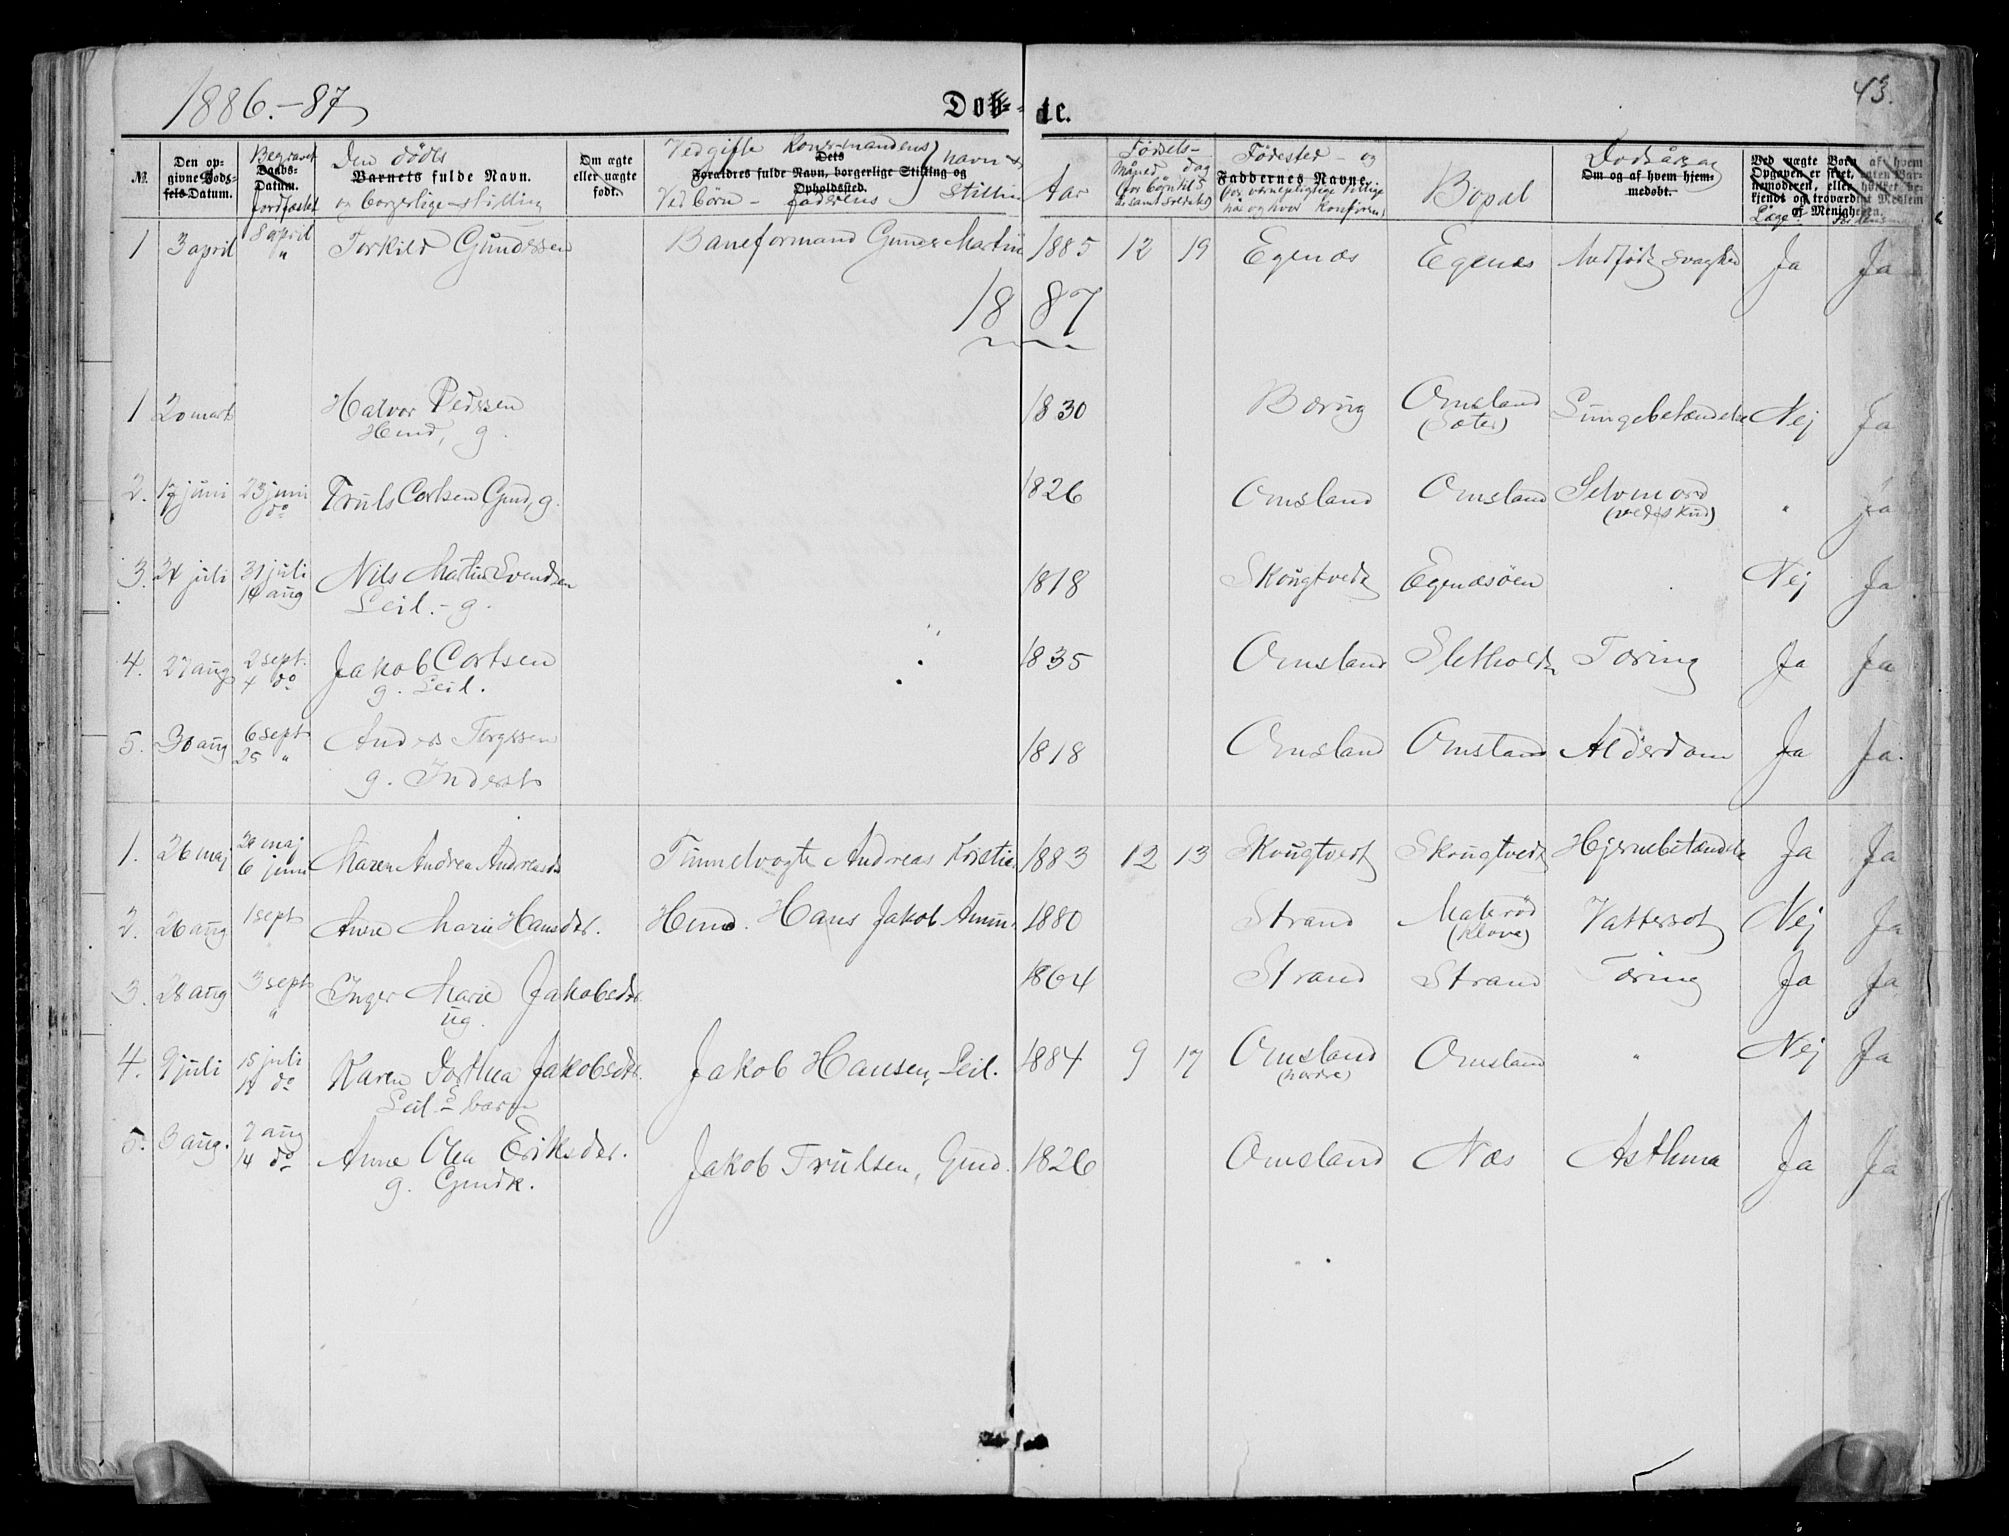 1886.-87
Døb- te.
43.
№
Den op-
givne Føds-
sels-Datum.
Begravet
Daabs-
Datum.
Jordfæstet
Den dødes
Barnets fulde Navn.
og borgerlige stilling
Om ægte
eller uægte
født.
Ved gifte koner-mandens
Dets
Forældres fulde Navn, borgerlige Stilling og
Opholdssted.
Ved börn - faderens
navn &
Stilling
Aar
Fødsels-
Måned, dag
(for börn til 5
Fødested - og
Faddernes Navne.
når og hvor
Bopæl
Dødsårsag
Om og af hvem hjem-
medøbt.
Ved uægte Børn af hvem
Opgaven er skret,
nemoderen, eller
kjendt og troværdigt Medlem
af Menigheden.
Læge
1 3 april 8 april Torkild Gundersen Baneformand Gunder Martin 1885 12 19 Egenæs Egenæs Medfødt svaghed Ja Ja
1887
1 20 mart Halvor Pedersen 1830 Bærug Omsland Lungebetændelse Nej Ja
Hmd, g. (Sæter)
2. 17 juni 23 juni Truls Cortsen Gmd, g. 1826 Omsland Omsland Selvmord " Ja
do (ved skud)
3. 24 juli 31 juli Nils Martin Svendsen 1818 Skougtvedt Egenæsöen Nej Ja
14 aug Leil. - g.
4. 27 aug 2 sept. Jakob Cortsen 1835 Omsland Sletholdt Tæring Ja Ja
4 do g. Leil.
5. 30 aug 6 sept Anders Tergssen 1818 Omsland Omsland Alderdom Ja Ja.
25 " g. Inderst
1. 26 maj 29 maj Maren Andrea Andreasdr Tunnelvogte Andreas Kristia 1883 12 13 Skougtvedt Skougtvedt Hjernebetændelse Ja Ja
6 juni
2. 26 aug 1 sept Anne Marie Hansdr. Hmd. Hans Jakob Amun 1880 Strand Makrød Vattersot Nej Ja
(Kløve)
3. 28 aug 3 sept Inger Marie Jakobsdr. 1864 Strand Strand Tæring Ja Ja
" ug.
4. 9 juli 15 juli Karen Dorthea Jakobsdr. Jakob Hansen, Leil. 1884 9 17 Omsland Omsland " Nej Ja
17 do Leil.s barn (nordre)
5. 3 aug. 7 aug Anne Olea Eriksdr. Jakob Trulsen, Gmd. 1826 Omsland Næs Asthma Ja Ja
14 do g. Gmdk.